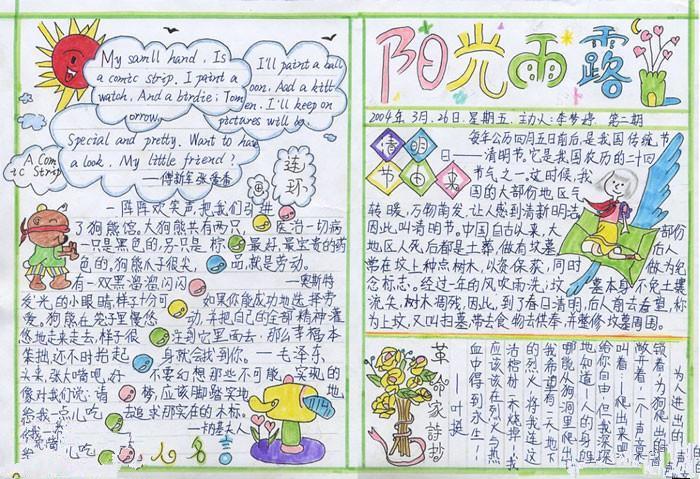 My samll hand. Is
a comic strip. I paint a
watch. And a birdie; Tom
orrow,
I'll paint a ball
oon. And a kitt
en. I'll keep on
pictures will be
Special and pretty. Want to have
a look, My little friend?
——傅新军 张
A Com
ic Strip
连
环
画
一阵阵欢笑声,把我们引进
了狗熊馆。大狗熊共有两只
一只是黑色的,另一只是棕
色的。狗熊爪子很尖,
有一双黑溜溜闪闪
发光的小眼睛,样子十分可
爱。狗熊在笼子里慢悠
悠地走来走去,样子很
笨拙,还不时抬起
头来,张大嘴吧,好
像对我们说:请
给我一点儿吃
医治一切病
最好、最宝贵的药
品,就是劳动。
——奥斯特
如果你能成功地选择劳
动,并把自己的全部精神灌
注到它里面去,那么幸福本
身就会找到你。——毛泽东
不要幻想那些不可能实现的
梦,应该脚踏实地地
去追求那实在的木标。
——切基夫人
名言
阳光雨露
2004年3月26日 星期五 主办人:李梦婷 第二期
清明
节由来
每年公历四月五日前后,是我国传统节
日——清明节。它是我国农历的二十四
节气之一。这时候,我
国的大部份地区气
转暖,万物萌发,让人感到清新明洁,
因此,叫清明节。中国自古以来,大部份
地区人死后都是土葬,做有坟墓,后人
常在坟上种点树木,以资保荻,同时做为纪
念标志。经过一年的风吹雨洗,坟墓本身不免土壤
流失,树木凋残,因此,到了春日清明,后人前去看望,称
为上坟,又叫扫墓,带去食物去供奉,并整修坟墓周围。
革命家诗抄
——叶挺
为人进出的门紧
锁着,为狗爬出的
敞开着,一个声音高
叫着:——爬出来吧,
给你自由!但我深深
地知道——人的身躯
哪能从狗洞里爬出!
我希望有一天地下
的烈火,将我连这
活棺材一齐烧掉!我
应该在烈火与热
血中得到永生!